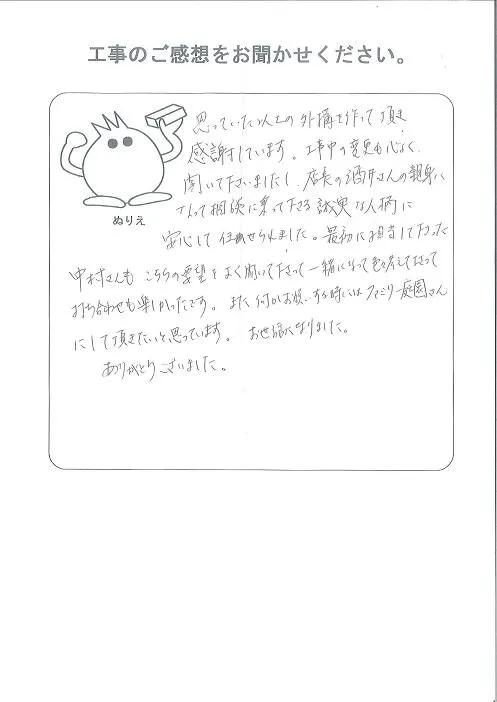 工事のご感想をお聞かせください。
ぬりえ
思っていた以上の外構を作って頂き
感謝しています。工事中の変更も心よく
聞いて下さいましたし、店長の酒井さんの親身に
なって相談に乗って下さる誠実な人柄に
安心して任せられました。最初に担当して下さった
中村さんも こちらの要望をよく聞いて下さって一緒になって色々考えて下さって
打ち合わせも楽しかったです。また何かお願いする時にはファミリー庭園さん
にして頂きたいと思っています。 お世話になりました。
ありがとうございました。